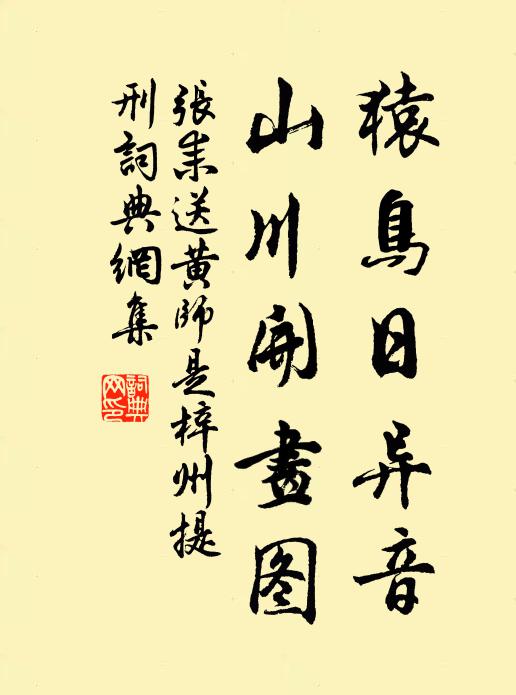 猿鳥日异音
山川開畫图
張耒送黄師是梓州提
刑詞典網集
詞典
网印